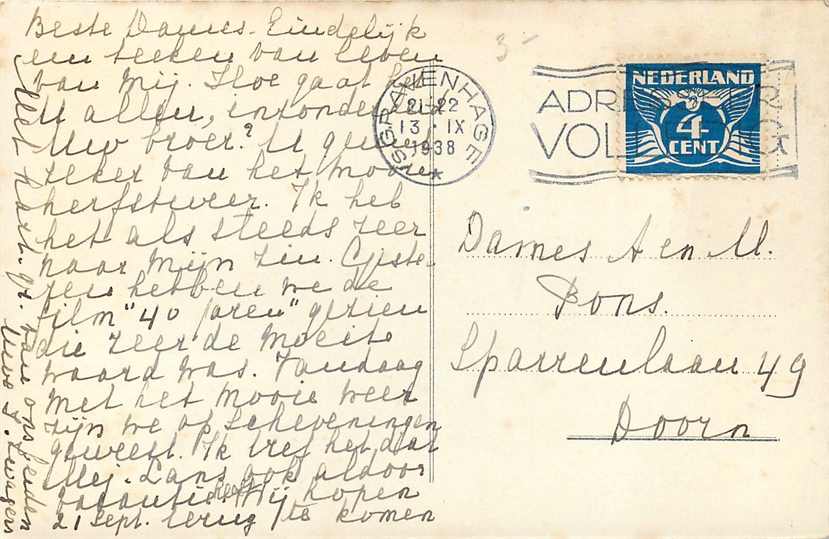 Beste Dames. Eindelijk
een teeken van leven
van mij. Hoe gaat het
U allen, inzonderheid
Uw broer? U geniet
zeker van het mooie
herfstweer. Ik heb
het als steeds zeer
naar mijn zin. Giste-
ren hebben we de
film "40 jaren" gezien
die zeer de moeite
waard was. Vandaag
met het mooie weer
zijn we op Scheveningen
geweest. Ik tref het dat
Mej. Lans ook aldoor
vacantie heeft. Wij hopen
21 Sept. terug te komen
Met hart. gr. van ons beiden
Uwe J.
3-
'SGRAVENHAGE
21-22
13 · IX
1938
ADR
VOLL G
NEDERLAND
4
CENT
Dames A en M.
Pons.
Sparrenlaan 49
Doorn